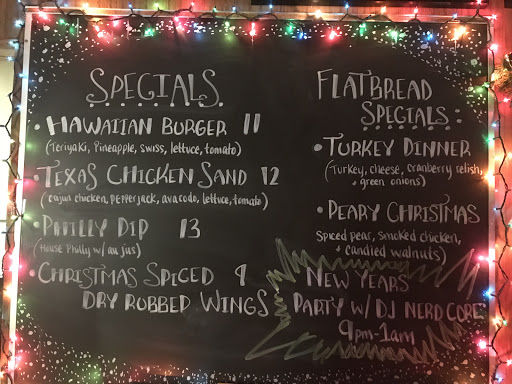 SPECIALS
• HAWAIIAN BURGER 11
(Teriyaki, Pineapple, swiss, lettuce, tomato)
• TEXAS CHICKEN SAND 12
(cajun chicken, Pepperjack, avacado, lettuce, tomato)
• PHILLY DIP 13
(House Philly w/ au jus)
• CHRISTMAS SPICED 9
DRY ROBBED WINGS
FLATBREAD
SPECIALS:
• TURKEY DINNER
(Turkey, cheese, cranberry relish,
+ green onions)
• PEARY CHRISTMAS
Spiced pear, smoked chicken,
+ candied walnuts)
NEW YEARS
PARTY W/ DJ NERD CORE
9pm-1am